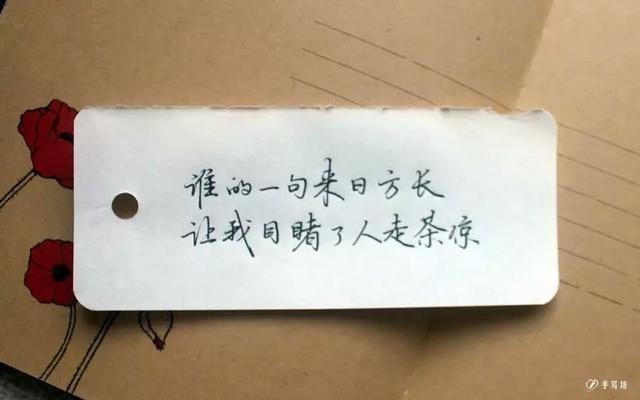 谁的一句来日方长
让我目睹了人走茶凉
手写坊